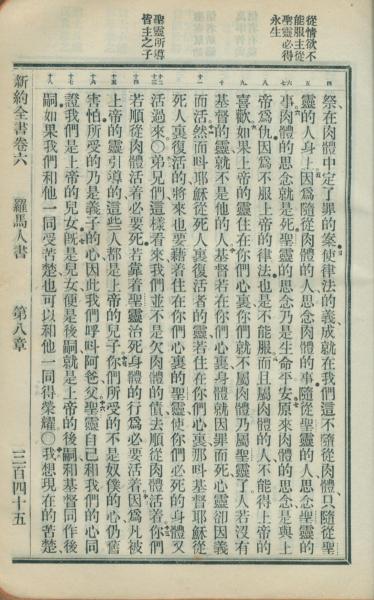 從情欲不
能服主從
聖靈必得
永生
聖靈所導
皆主之子
祭在肉體中定了罪的案使律法的義成就在我們這不隨從肉體只隨從聖
靈的人身上因爲隨從肉體的人思念肉體的事隨從聖靈的人思念聖靈的
事肉體的思念就是死聖靈的思念乃是生命平安原來肉體的思念是與上
帝爲仇因爲不服上帝的律法也是不能服而且屬肉體的人不能得上帝的
喜歡如果上帝的靈住在你們心裏你們就不屬肉體乃屬聖靈了人若沒有
基督的靈就不是他的人基督若在你們心裏身體就因罪而死心靈卻因義
而活然而呌耶穌從死人裏復活者的靈若住在你們心裏那呌基督耶穌從
死人裏復活的將來也要藉着住在你們心裏的聖靈使你們必死的身體又
活過來〇弟兄們這樣看來我們並不是欠肉體的債去順從肉體活着你們
若順從肉體活着必要死若靠着聖靈治死身體的行爲必要活着因爲凡被
上帝的靈引導的這些人都是上帝的兒子你們所受的不是奴僕的心仍舊
害怕所受的乃是義子的心因此我們呼呌阿爸父聖靈自己和我們的心同
證我們是上帝的兒女旣是兒女便是後嗣就是上帝的後嗣和基督同作後
嗣如果我們和他一同受苦楚也可以和他一同得榮耀〇我想現在的苦楚
新約全書卷六　羅馬人書　第八章　三百四十五
四
五
六
七
八
九
十
十一
十二
十三
十四
十五
十六
十七
十八